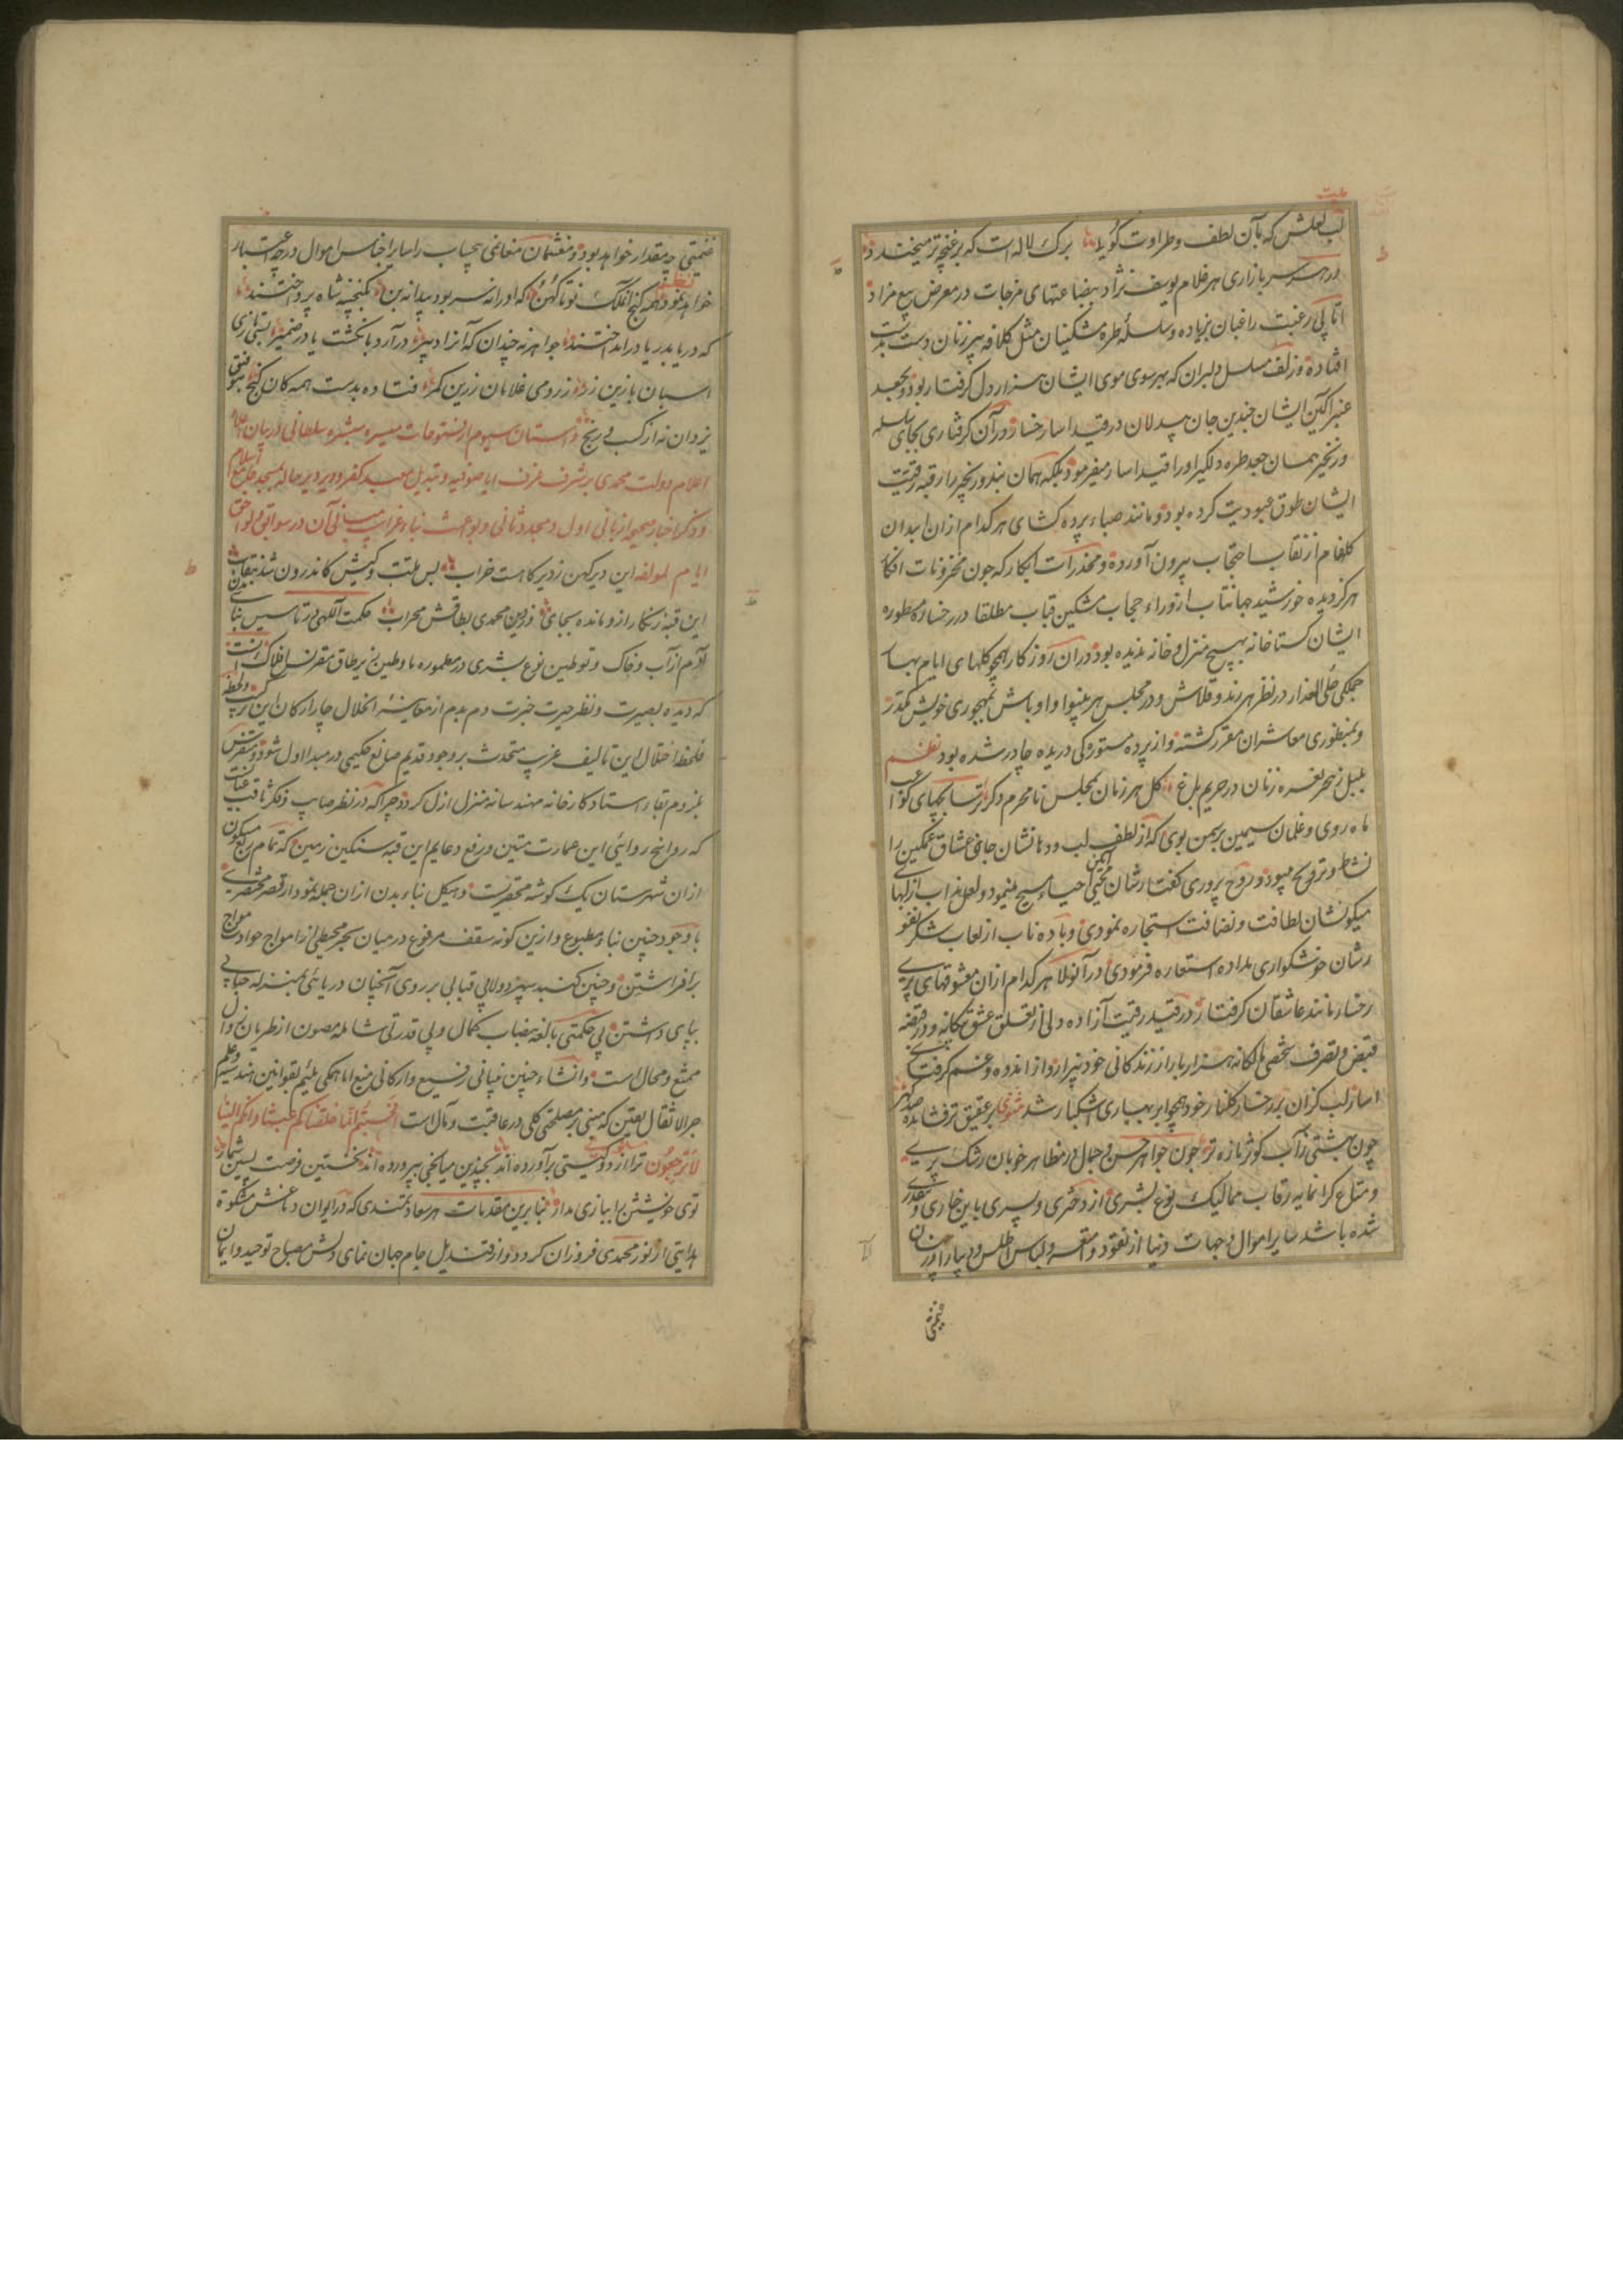 لب لعلش که بآن لطف و طراوت گویا برک لاله است که بر غنچه تر میخندد
در هر سر بازاری هر غلام یوسف نژاد ببضاعتهای مزجات در معرض بیع مزاد
اما پی رغبت راغبان بزیاده و سلسله طره مشکینان مثل کلافه پیر زنان دست بدست
افتاده و زلف مسلسل دلبران که بهر سوی موی ایشان هزار دل کرفتار بود و بجعد
عنبراکین ایشان چندین جان بیدلان در قید اسار در آن کرفتاری بجای سلسله
و زنجیر همان جعد طره دلکیر او را قید اسار میفرمود بلکه همان بند و زنجیر را رقبه رقیت
ایشان طوق عبودیت کرده بود و مانند صباء پرده کشای هر کدام ازان ابدان
کلفام از نقاب احتجاب بیرون آورده و مخدرات ابکار که چون مخزونات افکار
هرکز دیده خورشید جهانتاب از وراء حجاب مشکین قباب مطلقا در رخسار مسطوره
ایشان کستاخانه بهیچ منزل و خانه ندیده بود دران روزکار همچو کلهای ایام بهار
جملکی خلی العذار در نظر هر رند و قلاش و در مجلس هر بینوا و اوباش بمهجوری خویش
و بمنظوری معاشران مقرر کشته و از پرده مستورکی دریده چادر شده بود نظم
بلبل ز هجر نعره زنان در حریم باغ کل هر زمان بمجلس نامحرم دکر ترسابچهای کواعب
ماه روی و غلمان سیمین بر سمن بوی که از لطف لب و دهانشان جانی عشاق غمکین را
نشاط و ترویح میبود و روح پروری کفتارشان احیاء مسیح مینمود و لعل مذاب از لبهای
میکونشان لطافت و نضافت استجاره نمودی و باده ناب از لعاب شکر
رشان خوشکواری بداده استعاره فرمودی در آنولا هر کدام ازان معشوقهای پری
رخسار مانند عاشقان کرفتار در قید رقیت آزاده ولی از تعلق عشق بیکانه و در قبضه
قبض و تصرف شخصی مالکانه هزار بار از زندکانی خود بیزار و از اندوه و غم کرفتاری
اسار لب کزان بر رخسار کلنار خود همچو ابر بهاری اشکبار شد مثنوی بر عقیق تر فشانده صد کهر
چون بهشتی ز آب کوثر تازه تر چون جواهر حسن و جمال در مظاهر خوبان رشک پری
و متاع کرانمایه رقاب ممالیک نوع بشری از دختری و پسری باین خاری و بیقدری
شده باشد سایر اموال و جهات دنیا از نقود و امتعه و لباس اطلس و دیبا را
قیمتی
قیمتی چه مقدار خواهد بود و مغتنمان مغانمی بیحساب را سایر اجناس اموال در چه اعتبار
خواهد نمود نظم همه کنج افکنده نو تا کهن که او را نه سر بود پیدا نه بن بکنجینه شاه پرداختند
که دریا بدریا در انداختند جواهر نه چندان که آنرا دبیر درآرد بانکشت یا در ضمیر تازی
اسبان با زین زر ز رومی غلامان زرین کمر فتاده بدست همه کان کنج بتوفیق
یزدان نه از کسب و رنج داستان سیوم از فتوحات میسره مبشره سلطانی در بیان اعلاء
اعلام دولت محمدی بر شرف غرف ایاصوفیه و تبدیل معبد کفر و دیر دیرحاله بمسجد جامع اسلام
و ذکر اخبار صحیحه از بانی اول و مجدد ثانی و بواعث بناء غرایب مبانی آن در سوابق و لواحق
ایام لمولفه این دیر کهن ز دیر کاهست خراب بس ملت و کیش کاندرون شد بنقاب
این قبه زنکار ازو مانده بجای و ز دین محمدی بطاقش محراب حکمت الهی در تاسیس بنای بدن
آدم از آب و خاک و توطین نوع بشری در معموره ماء و طین زیر طاق مقرنس افلاک آنست
که دیده بصیرت و نظر حیرت خبرت دم بدم از معاینه انحلال چار ارکان این ترکیب و لحظه
فلحظه اختلال این تالیف غریب متحدث بر وجود قدیم صانع حکیمی در مبدا اول شود و معترف
بلزوم بقاء استاد کارخانه مهندسانه منزل ازل کردد چرا که در نظر صایب و فکر ثاقب
که روایح روایی این عمارت متین و رفع دعایم این قبه سنکین زمین که تمام ربع مسکون
ازان شهرستان یک کوشه محقریست و هیکل بناء بدن ازان جمله نمودار قصر مختصری
با وجود چنین بناء مطبوع و ازین کونه سقف مرفوع در میان بحر محیطی از امواج حوادث مواج
برافراشتن و چنین کنبد سپهر دولابی قبابی بر روی آنچنان دریائی بمنزله حبابی
بپای داشتن بی حکمتی بالغه بنصاب کمال و بی قدرتی شامله مصون از طریان زوال
ممتنع و محال است و انشاء چنین بنیانی رفیع و ارکانی منیع اما همکی ملتئم بقوانین هندسی و علم
جر الاثقال یقین که مبنی بر مصلحتی کلی در عاقبت و مآل است افحسبتم انما خلقناکم عبثا و انکم الینا
لا ترجعون ترا از دو کیتی برآورده اند بچندین میانجی بپرورده اند نخستین فطرت پسین شمار
توی خویشتن را ببازی مدار بنابرین مقدمات هر سعادتمندی که در ایوان دماغش مشکوة
هدایتی از نور محمدی فروزان کردد و از قندیل جام جهان نمای دلش مصباح توحید و ایمان